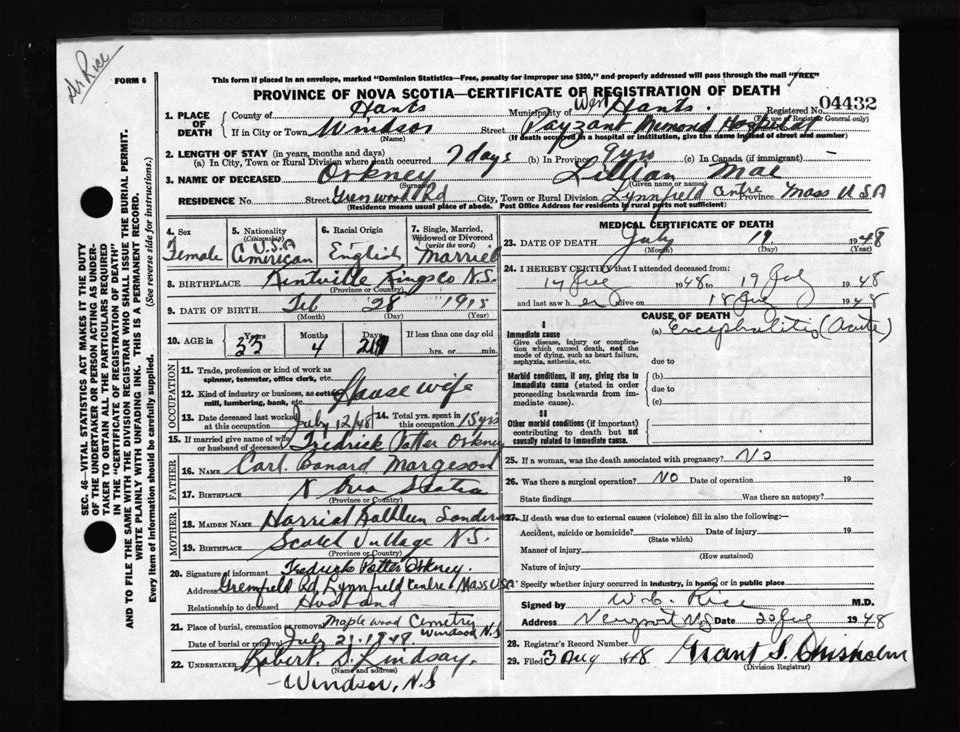 Dr Rice
FORM 6
This form if placed in an envelope, marked "Dominion Statistics—Free, penalty for improper use $300," and properly addressed will pass through the mail "FREE"
PROVINCE OF NOVA SCOTIA—CERTIFICATE OF REGISTRATION OF DEATH
1. PLACE OF DEATH
County of Hants Municipality of West Hants. Registered No. 04432
If in City or Town Windsor Street Payzant Memorial Hospital
(Name) (If death occurred in a hospital or institution, give the name instead of street and number)
2. LENGTH OF STAY (in years, months and days)
(a) In City, Town or Rural Division where death occurred 7 days (b) In Province 9 yrs (c) In Canada (if immigrant)
3. NAME OF DECEASED Orkney Lillian Mae
(Surname) (Given name or names)
RESIDENCE No. Street Rd City, Town or Rural Division Lynnfield Centre Province Mass U S A
(Residence means usual place of abode. Post Office Address for residents of rural parts not sufficient)
4. Sex
Female
5. Nationality (Citizenship)
U.S.A
American
6. Racial Origin
English
7. Single, Married, Widowed or Divorced (write the word)
Married
8. BIRTHPLACE Kentville Kings Co N.S.
(Province or Country)
9. DATE OF BIRTH Feb 28 1915
(Month) (Day) (Year)
10. AGE in Years Months Days If less than one day old
33 4 hrs. or min.
OCCUPATION
11. Trade, profession or kind of work as spinner, teamster, office clerk, etc.
12. Kind of industry or business, as cotton mill, lumbering, bank, etc. House wife
13. Date deceased last worked at this occupation July 12/48
14. Total yrs. spent in this occupation 15 yrs
15. If married give name of wife or husband of deceased Fredrick Potter Orkney
FATHER
16. NAME Carl Margeson
17. BIRTHPLACE Nova Scotia
(Province or Country)
MOTHER
18. MAIDEN NAME Harriet Kathleen
19. BIRTHPLACE Scotch Village N.S.
(Province or Country)
20. Signature of informant Fredrick Potter Orkney.
Address Rd. Lynnfield Centre Mass USA
Relationship to deceased Husband
21. Place of burial, cremation or removal Maplewood Cemetry
Windsor N.S
Date of burial or removal July 21-1948.
22. UNDERTAKER Robert D. Lindsay.
(Name and address)
- Windsor, N.S
MEDICAL CERTIFICATE OF DEATH
23. DATE OF DEATH July 19 1948
(Month) (Day)
24. I HEREBY CERTIFY that I attended deceased from:
1948 to 19 July 1948
and last saw her alive on 18 July 1948
CAUSE OF DEATH
I
Immediate cause (a) Encephalitis (Acute)
Give disease, injury or complication which caused death, not the mode of dying, such as heart failure, asphyxia, asthenia, etc.
due to
Morbid conditions, if any, giving rise to immediate cause (stated in order proceeding backwards from immediate cause).
(b)
due to
(c)
II
Other morbid conditions (if important) contributing to death but not causally related to immediate cause.
25. If a woman, was the death associated with pregnancy? No
26. Was there a surgical operation? NO Date of operation 19
State findings Was there an autopsy?
27. If death was due to external causes (violence) fill in also the following:—
Accident, suicide or homicide? Date of injury 19
(State which)
Manner of injury
(How sustained)
Nature of injury
Specify whether injury occurred in industry, in home, or in public place
Signed by W.C. Rice M.D.
Address Newport N.S Date 20 July 1948
28. Registrar's Record Number
29. Filed 3 Aug 1948 Grant S. Chisholm
(Division Registrar)
SEC. 46—VITAL STATISTICS ACT MAKES IT THE DUTY OF THE UNDERTAKER OR PERSON ACTING AS UNDERTAKER TO OBTAIN ALL THE PARTICULARS REQUIRED IN THE "CERTIFICATE OF REGISTRATION OF DEATH" AND TO FILE THE SAME WITH THE DIVISION REGISTRAR WHO SHALL ISSUE THE BURIAL PERMIT.
WRITE PLAINLY WITH UNFADING INK. THIS IS A PERMANENT RECORD.
Every item of information should be carefully supplied. (See reverse side for instructions.)